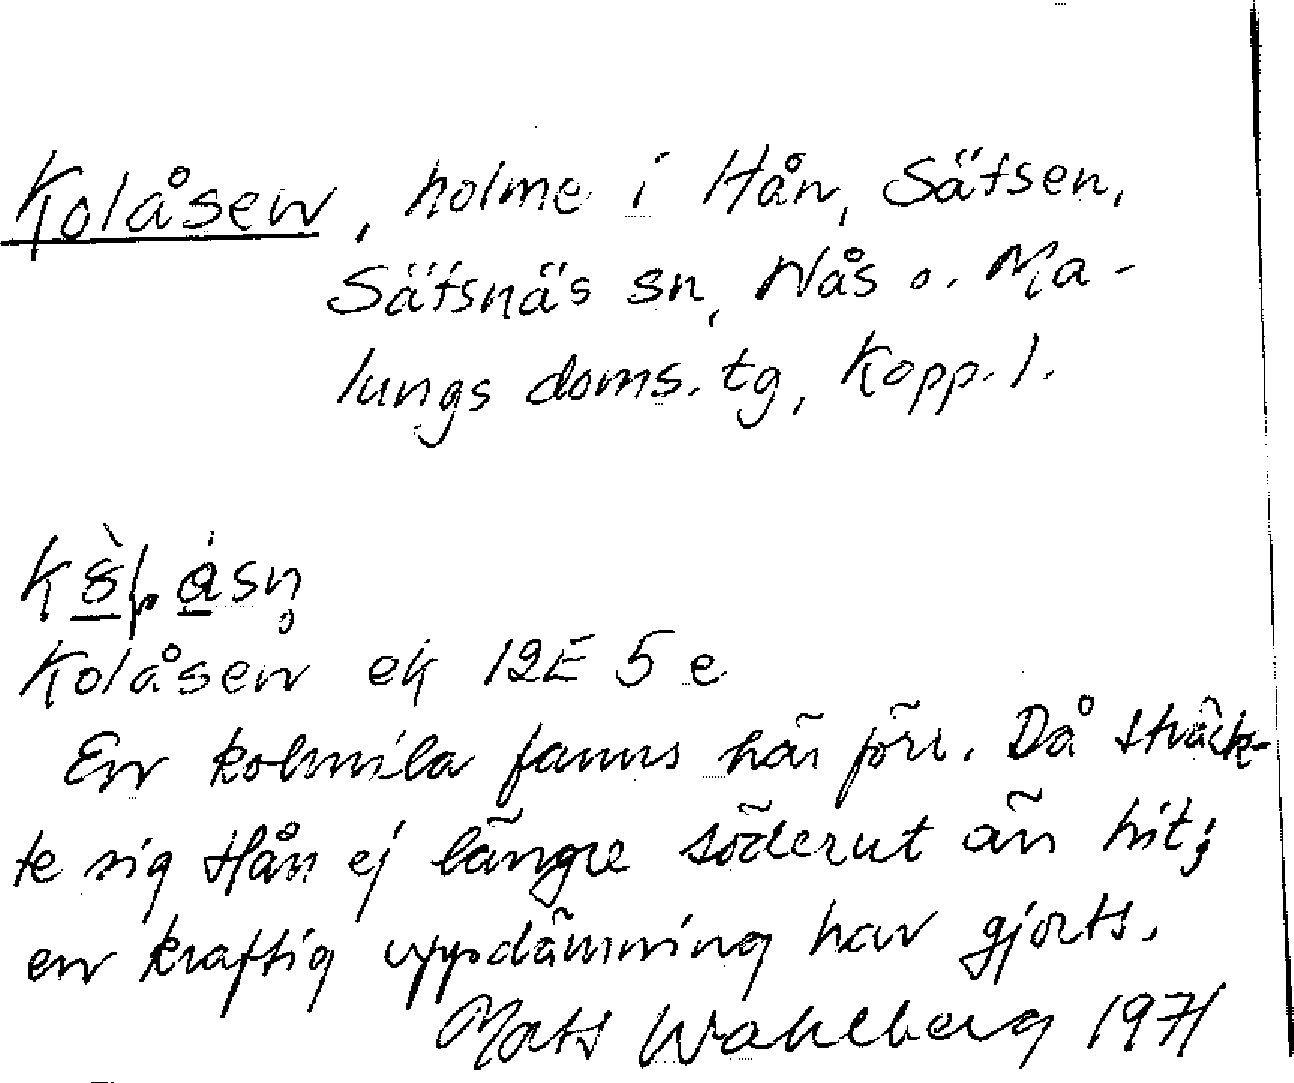 Kolåsen, holme i Hån, Säfsen,
Säfsnäs sn, Nås o. Ma-
lungs doms. tg, Kopp. l.
Kolåsen ek 12E 5e
En kolmila fanns här förr. Då sträck-
te sig Hån ej längre söderut än hit;
en kraftig uppdämning har gjorts.
Mats Wahlberg 1971